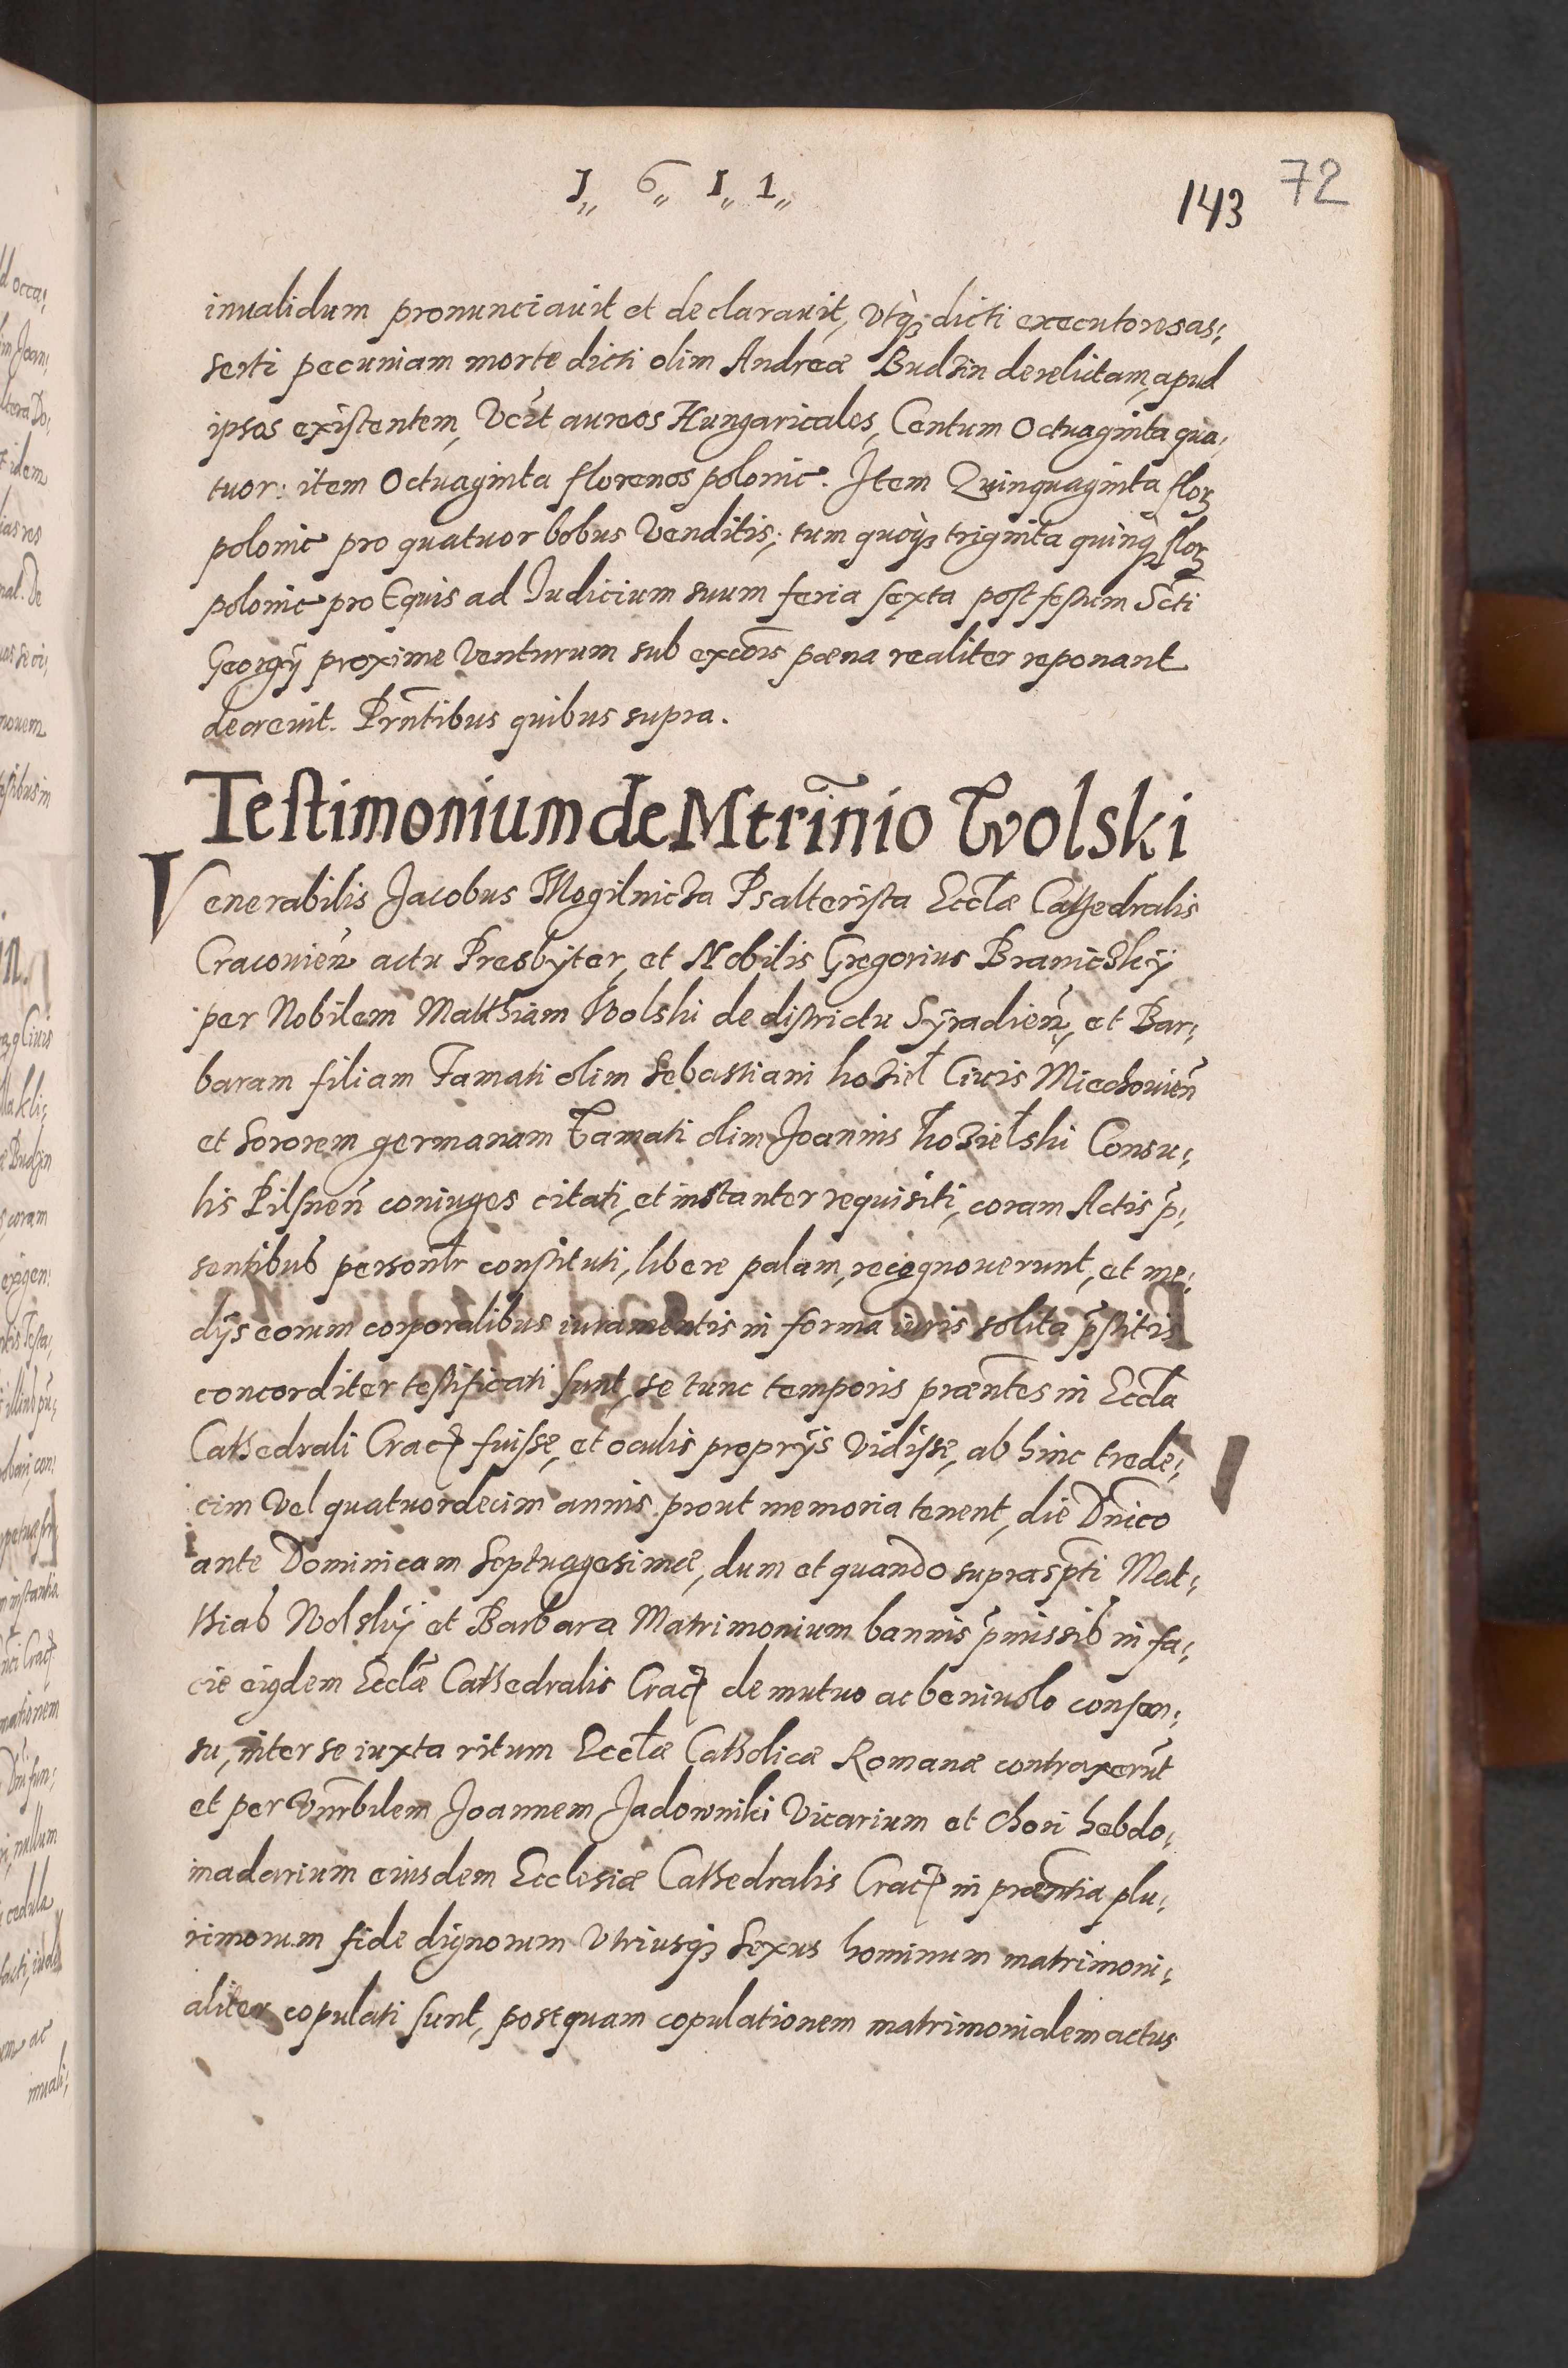 1„ 6„ 1„ 1„
143 72
inualidum pronunciauit et declarauit, Vtq́3 dicti executores as:
serti pecuniam morte dicti olim Andreæ Budzin derelictam, apud
ipsos existentem, Vc̃t aureos Hungaricales, Centum Octuaginta qua:
tuor: item Octuaginta florenos polonic. Item Quinquaginta flor
polonic pro quatuor bobus Venditis; tum quoq3 triginta quinq3 flor
polonic pro Equis ad Iudicium suum feria sexta post festum Scti
Georgÿ proxime Venturum sub excõis pæna realiter reponant
decreuit. Prñtibus quibus supra.
Testimonium de Mtrinio Wolski
Venerabilis Jacobus Mogilnicza Psalterista Eccłæ Cathedralis
Cracouień actu Presbÿter, et Nobilis Gregorius Braniczkÿ
per Nobilem Matthiam Wolski de districtu Sÿradień, et Bar:
baram filiam Famati olim Sebastiani koziel Ciuis Miechouień
et sororem germanam Famati olim Joannis kozielski Consu:
lis Pilsneñ coniuges citati, et instanter requisiti, coram Actis p̃:
sentibus personłr constituti, libere palam, recognouerunt, et me:
dÿs eorum corporalibus iuramentis in forma iuris solita p̃stitis
concorditer testificati sunt, se tunc temporis præntes in Eccła
Cathedrali Crac fuisse, et oculis proprÿs Vidisse, ab hinc trede:
cim Vel quatuordecim annis prout memoria tenent, die Dñico
ante Dominicam Septuagesimæ, dum et quando suprasp̃ti Mat:
thias Wolskÿ et Barbara Matrimonium bannis p̃missis in fa:
cie eiusdem Eccłæ Cathedralis Crac de mutuo ac beniuolo consen:
su, inter se iuxta ritum Eccłæ Catholicæ Romanæ contraxerũt
et per Vnrbilem Joannem Jadowniki Vicarium et Chori hebdo:
madarium eiusdem Ecclesiæ Cathedralis Crac in præntia plu:
rimorum fide dignorum Vtriusq3 Sexus hominum matrimoni:
aliter copulati sunt, postquam copulationem matrimonialem actus